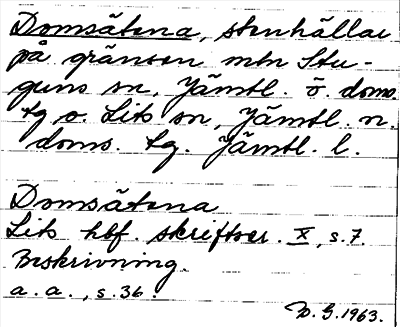 Domsätena, stenhällar
på gränsen mtn Stu-
guns sn, Jämtl. ö. doms.
tg o. Lits sn, Jämtl. n.
doms. tg. Jämtl. l.
Domsätena
Lits hbf. skriftser. X, s. 7.
Beskrivning.
a. a., s. 36.
1963.